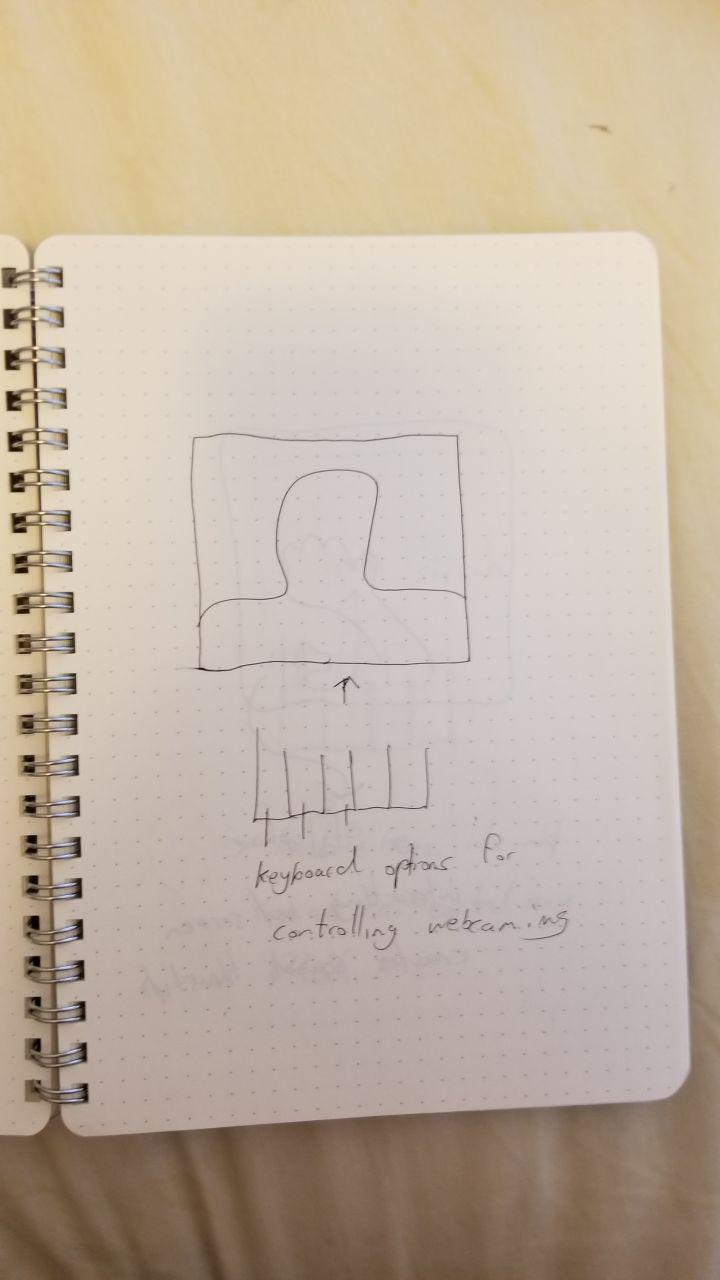 keyboard options for
controlling webcaming